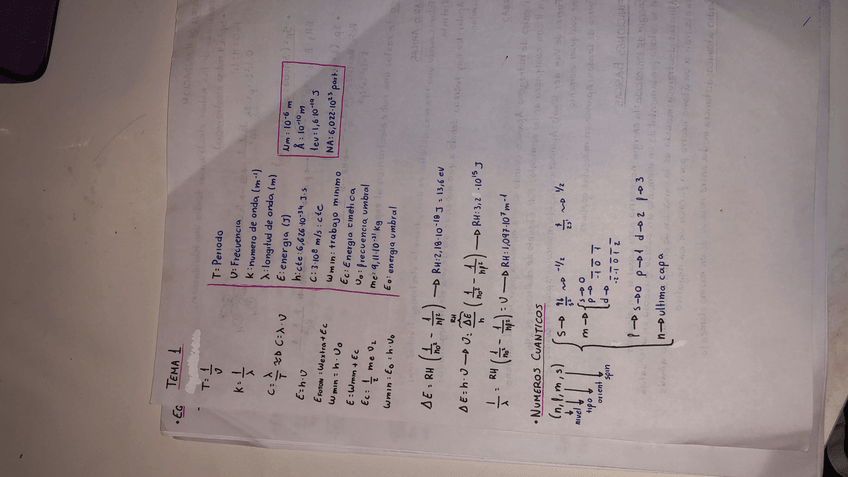 • EQ TEMA 1
- T = 1/υ
K = 1/λ
C = λ/T → C = λ · υ
E = h · υ
E FOTON = W extra + Ec
W min = h · υ0
E = W min + Ec
Ec = 1/2 me υ2
W min : E0 = h · υ0
T: Periodo
υ: Frecuencia
K: numero de onda (m-1)
λ: longitud de onda (m)
E: energía (J)
h: cte: 6,626·10-34 J·s
C: 3·10^8 m/s : cte
W min: trabajo minimo
Ec: Energia cinetica
υ0: frecuencia umbral
me: 9,11·10-31 kg
E0: energia umbral
μm: 10-6 m
Å: 10-10 m
1ev: 1,6·10-19 J
NA: 6,022·10^23 part.
ΔE = RH (1/n0² - 1/nf²) → RH: 2,18·10-18 J = 13,6 ev
ΔE = h · υ → υ: ΔE/h RH (1/n0² - 1/nf²) → RH: 3,2·10^15 J
1/λ = RH (1/n0² - 1/nf²) = υ → RH: 1,097·10^7 m-1
• NUMEROS CUANTICOS
(n, l, m, s)
nivel
tipo
orient
spin
s → -1/2 1/2
m → s → 0
p → -1 0 1
d → -2 -1 0 1 2
l → s → 0 p → 1 d → 2 f → 3
n → ultima capa